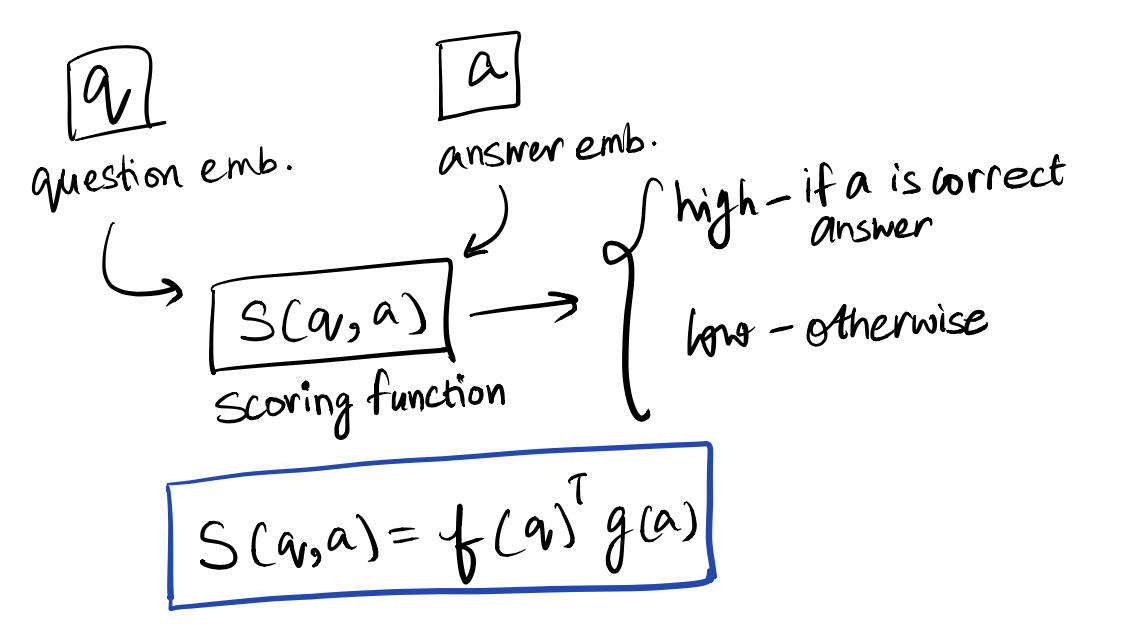 q
question emb.
a
answer emb.
S(q,a)
scoring function
high - if a is correct
answer
low - otherwise
S(q,a) = f(q)ᵀ g(a)